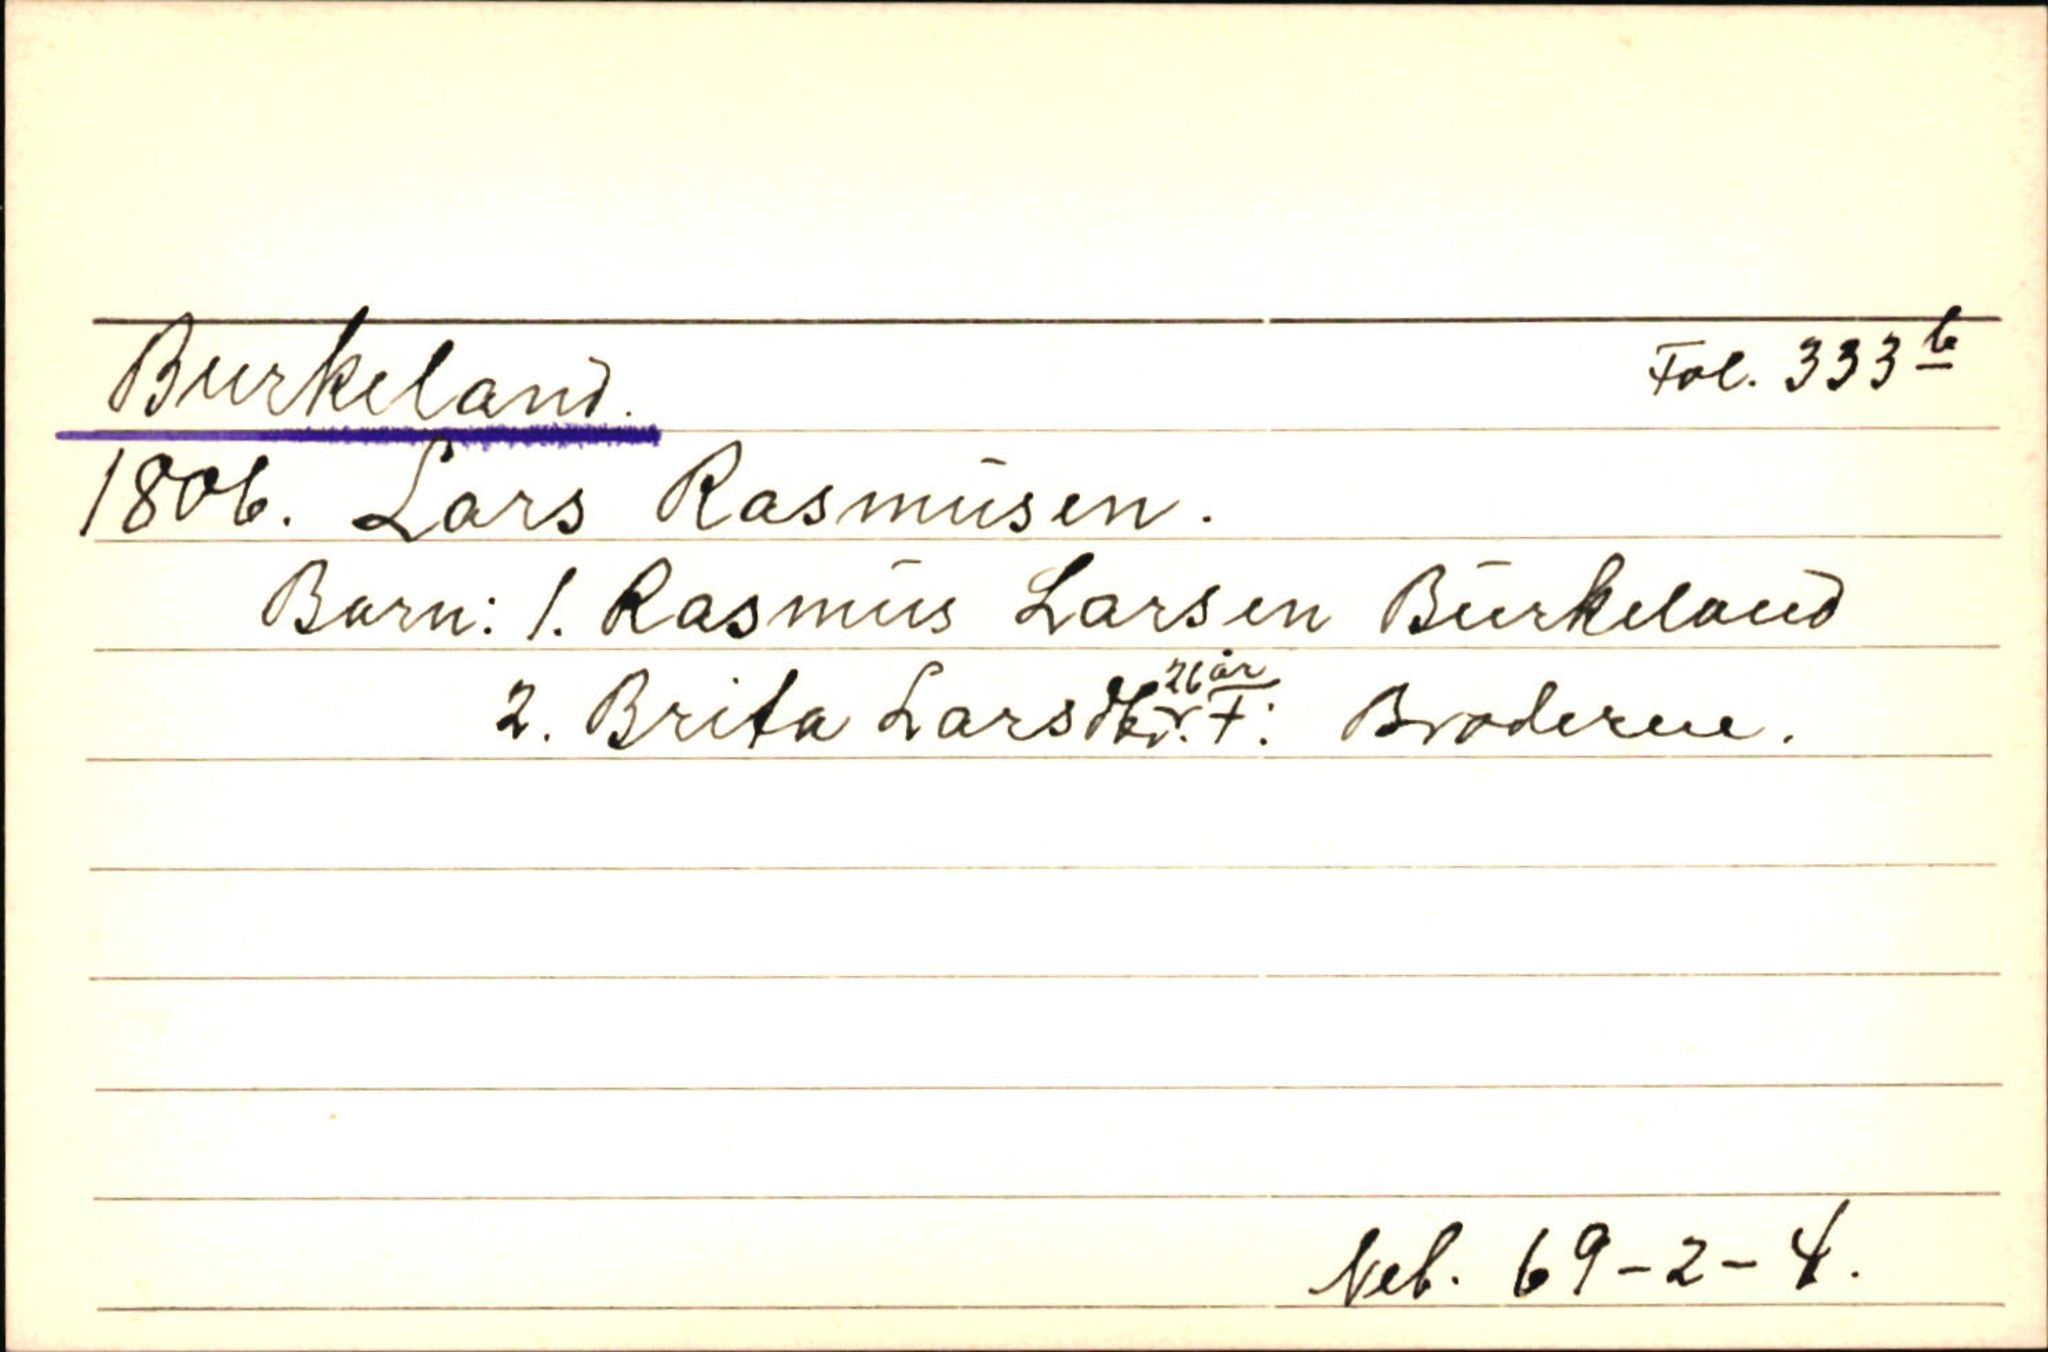 Burkeland. Fol. 333 b
1806. Lars Rasmusen.
Barn: 1. Rasmus Larsen Burkeland
2. Brita Larsdtr. 26 år F: Broderne.
Neb. 69-2-4.